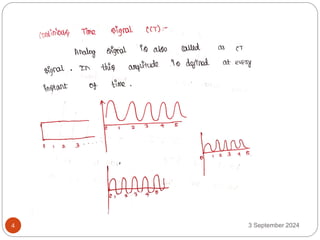 Continuous Time Signal (CT) :-
Analog Signal is also called as CT
Signal. In this amplitude is defined at every
instant of time.
0 1 2 3 4 5
1 2 3
0 1 2 3 4 5
2 3 4 5
4
3 September 2024